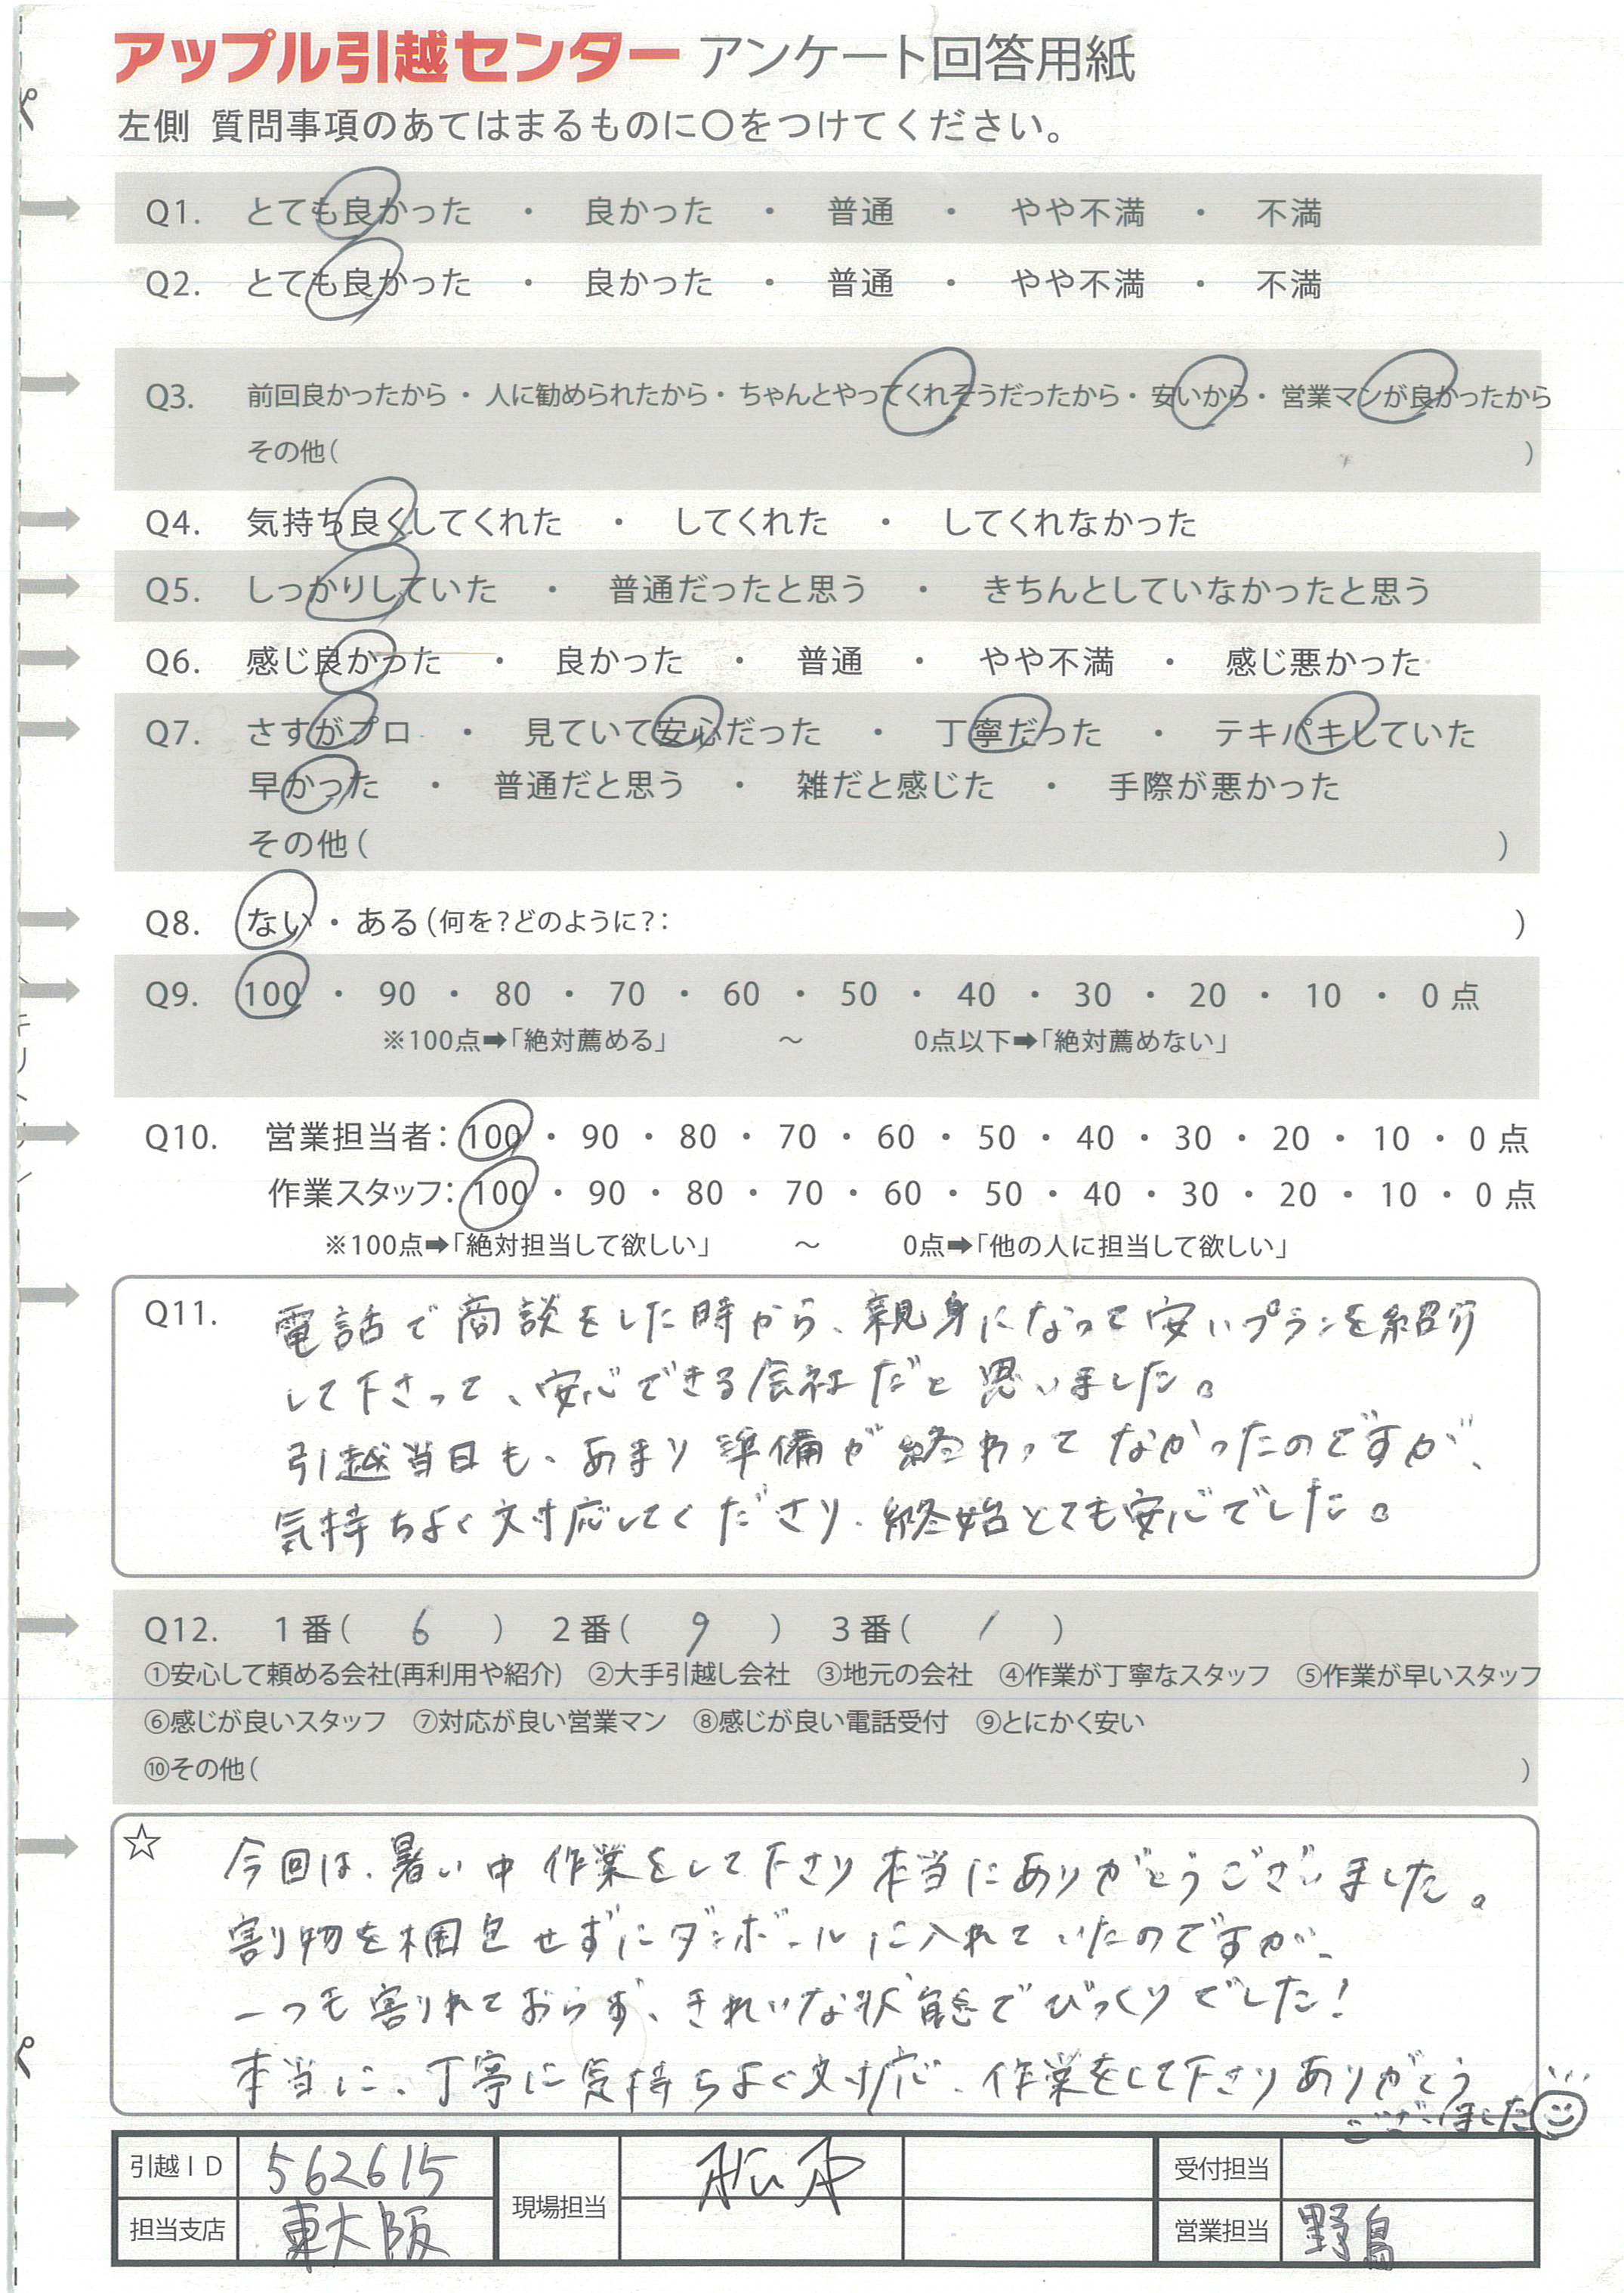 アップル引越センター アンケート回答用紙
左側 質問事項のあてはまるものに〇をつけてください。
Q1. とても良かった ・ 良かった ・ 普通 ・ やや不満 ・ 不満
Q2. とても良かった ・ 良かった ・ 普通 ・ やや不満 ・ 不満
Q3. 前回良かったから・人に勧められたから・ちゃんとやってくれそうだったから・安いから・営業マンが良かったから
その他( )
Q4. 気持ち良くしてくれた ・ してくれた ・ してくれなかった
Q5. しっかりしていた ・ 普通だったと思う ・ きちんとしていなかったと思う
Q6. 感じ良かった ・ 良かった ・ 普通 ・ やや不満 ・ 感じ悪かった
Q7. さすがプロ ・ 見ていて安心だった ・ 丁寧だった ・ テキパキしていた
早かった ・ 普通だと思う ・ 雑だと感じた ・ 手際が悪かった
その他( )
Q8. ない・ある(何を?どのように?: )
Q9. 100 ・ 90 ・ 80 ・ 70 ・ 60 ・ 50 ・ 40 ・ 30 ・ 20 ・ 10 ・ 0 点
※100点➡「絶対薦める」 ～ 0点以下➡「絶対薦めない」
Q10. 営業担当者: 100 ・ 90 ・ 80 ・ 70 ・ 60 ・ 50 ・ 40 ・ 30 ・ 20 ・ 10 ・ 0 点
作業スタッフ: 100 ・ 90 ・ 80 ・ 70 ・ 60 ・ 50 ・ 40 ・ 30 ・ 20 ・ 10 ・ 0 点
※100点➡「絶対担当して欲しい」 ～ 0点➡「他の人に担当して欲しい」
Q11. 電話で商談をした時から、親身になって安いプランを紹介
して下さって、安心できる会社だと思いました。
引越当日も、あまり準備が終わってなかったのですが、
気持ちよく対応してくださり、終始とても安心でした。
Q12. 1番( 6 ) 2番( 9 ) 3番( 1 )
①安心して頼める会社(再利用や紹介) ②大手引越し会社 ③地元の会社 ④作業が丁寧なスタッフ ⑤作業が早いスタッフ
⑥感じが良いスタッフ ⑦対応が良い営業マン ⑧感じが良い電話受付 ⑨とにかく安い
⑩その他( )
☆ 今回は、暑い中作業をして下さり本当にありがとうございました。
割物を梱包せずにダンボールに入れていたのですが、
一つも割れておらず、きれいな状態でびっくりでした!
本当に、丁寧に気持ちよく対応、作業をして下さりありがとう
ございました
引越ID 562615 現場担当 松本 受付担当
担当支店 東大阪 営業担当 野島